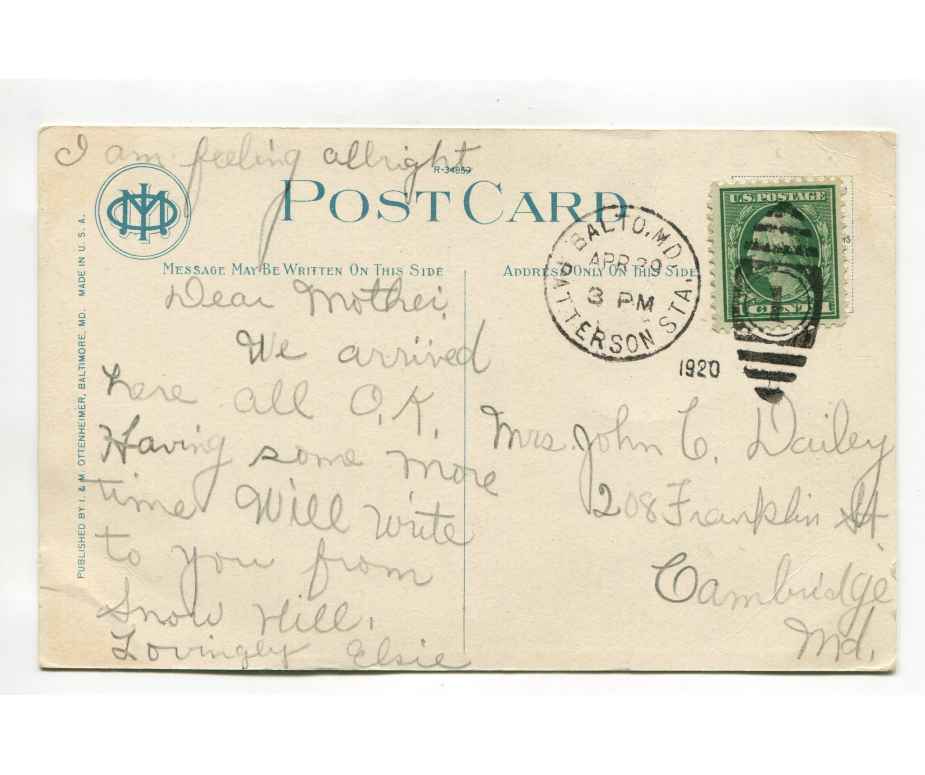 I am feeling allright
R-34859
POST CARD
MESSAGE MAY BE WRITTEN ON THIS SIDE
ADDRESS ONLY ON THIS SIDE
PUBLISHED BY I. & M. OTTENHEIMER, BALTIMORE, MD. MADE IN U. S. A.
Dear Mother,
We arrived
here all O.K.
Having some more
time Will write
to you from
Snow Hill.
Lovingly Elsie
BALTO, MD.
APR 29
3 PM
PATTERSON STA.
1920
U.S. POSTAGE
1 CENT 1
1
Mrs. John C. Dailey
208 Franklin St
Cambridge
Md.